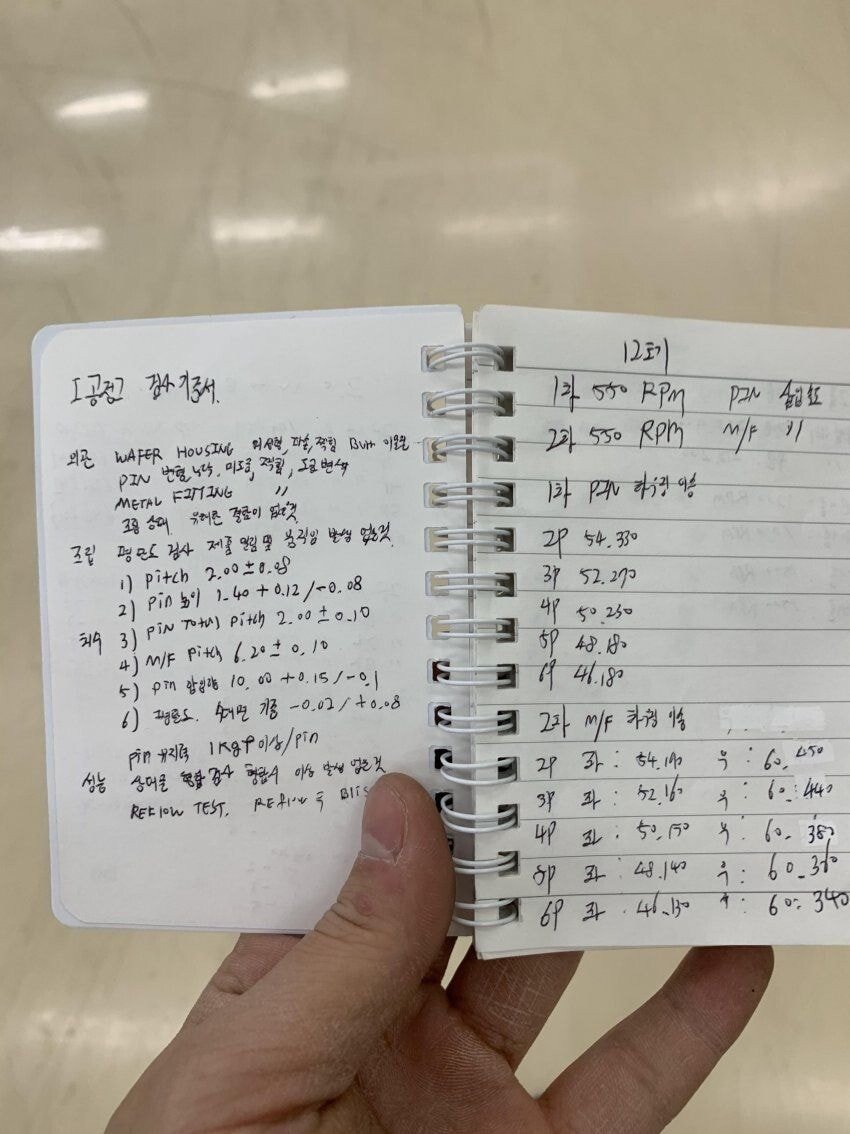 I 공정그 검사기준서.
외관 WAFER HOUSING 미성형, 파손, 찍힘 Burr 이물질
PIN 변형, 낙삭, 미도금, 찍힘, 도금변색
METAL FITTING 〃
조립 상태 유해한 결함이 없을것
조립 평탄도 검사 제품 밀림 및 움직임 발생 없을것.
1) Pitch 2.00 ± 0.08
2) Pin 높이 1.40 + 0.12 / -0.08
치수 3) PIN Total Pitch 2.00 ± 0.10
4) M/F Pitch 6.20 ± 0.10
5) Pin 압입량 10.00 + 0.15 / -0.1
6) 평탄도. 기준 -0.02 / +0.08
Pin 유지력 1Kgf 이상/pin
성능 상대물 결합 검사 결합시 이상 발생 없을것
REFLOW TEST. REFlow 후 Blis
12호기
1차 550 RPM PIN 삽입속도
2차 550 RPM M/F 〃
1차 PIN 하우징 이송
2P 54.330
3P 52.270
4P 50.230
5P 48.180
6P 46.180
2차 M/F 하우징 이송
2P 좌 : 54.190 우 : 60.450
3P 좌 : 52.160 우 : 60.440
4P 좌 : 50.150 우 : 60.380
5P 좌 : 48.140 우 : 60.360
6P 좌 : 46.130 우 : 60.340